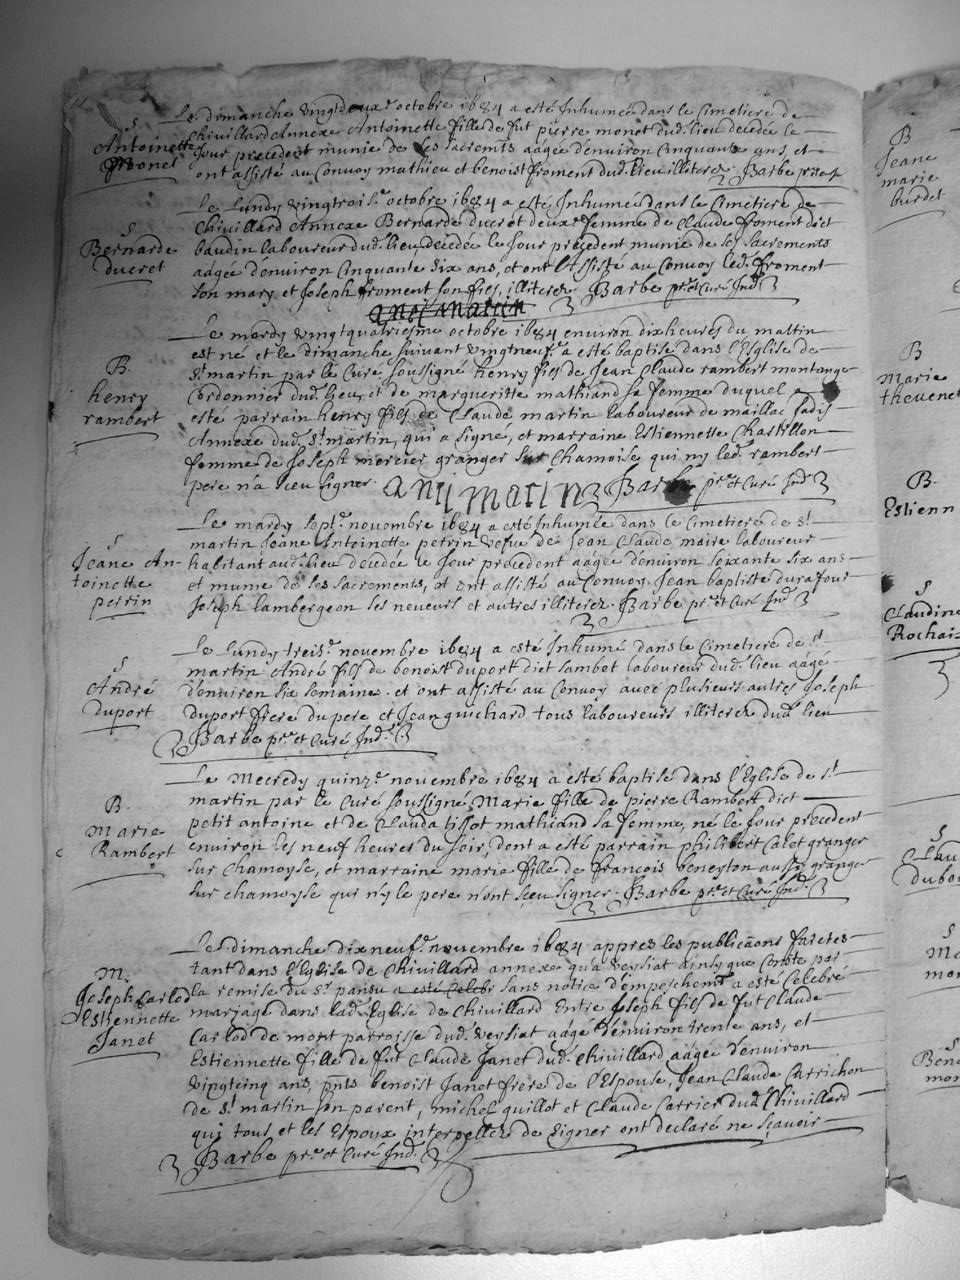 Le dimanche vingtdeuxe octobre 1684 a esté Inhumée dans le Cimetiere de
S
Antoinette
Monet
Chivillard Annexe Antoinette fille de fut pierre monet dud. lieu decedée le
Jour precedent munie de ses sacremts aagée denviron Cinquante ans, et
ont assisté au Convoy mathieu et benoist froment dud. lieu illiterez Barbe
Le Lundy vingtrois.e octobre 1684 a esté Inhumée dans le Cimetiere de
S
Bernarde
ducret
Chivillard Annexe Bernarde ducret deuxe femme de Claude froment dict
baudin laboureur dud. lieu, decedée le Jour precedent munie de ses sacrements
aagée denviron Cinquante six ans, et ont assisté au Convoy led. froment
son mary et Joseph froment son fils, illiterez Barbe pre et Curé Ind
Le mardy vingtquatriesme octobre 1684 environ dix heures du mattin
est né et le dimanche suivant vingtneufe a esté baptisé dans l'Eglise de
B.
henry
rambert
St martin par le Curé soussigné henry fils de Jean Claude rambert montange
Cordonnier dud. lieu, et de margueritte mathiand sa femme duquel a
esté parrain henry fils de Claude martin laboureur de maillac
Annexe dud. St martin, qui a signé, et marraine Estiennette Chastillon
femme de Joseph mercier granger sur Chamoise qui ny led. rambert
pere n'a sceu signer. martin Barbe pre et Curé Ind
Le mardy septe novembre 1684 a esté Inhumée dans le Cimetiere de St
S
Jeane An-
toinette
perrin
martin Jeane Antoinette perrin vefve de Jean Claude maire laboureur
habitant aud. lieu decedée le Jour precedent aagée denviron soixante six ans
et munie de ses sacrements, et ont assisté au Convoy Jean baptiste durafour
Joseph Lambergeon ses neveurs et autres illiterez. Barbe pre et Curé Ind
Le Lundy treise novembre 1684 a esté Inhumé dans le Cimetiere de St
S
André
duport
martin André fils de benoist duport dict Lambot laboureur dud. lieu aagé
denviron six semaines. et ont assisté au Convoy avec plusieurs autres Joseph
duport frere du pere et Jean guichard tous laboureurs illiterez dud. lieu
Barbe pre et Curé Ind.
Le Mecredy quinze novembre 1684 a esté baptisé dans l'Eglise de St
B.
Marie
Rambert
martin par le Curé soussigné Marie fille de pierre Rambert dict
petit antoine et de Clauda tissot mathiand sa femme, né le Jour precedent
environ les neuf heures du soir, dont a esté parrain philibert Calet granger
sur Chamoyse, et marraine marie fille de françois beneyton aussy granger
sur chamoyse qui n'y le pere n'ont sceu signer. Barbe pre et Curé Ind.
Le dimanche dixneufe novembre 1684 appres les publicãons faictes
M.
Joseph Carlod
Estiennette
Janet
tant dans l'Eglise de Chivillard annexe qu'a veysiat ainsy que Conste par
la remise du Sr a esté Celebr sans notice d'empeschemt a esté Celebré
mariage dans lad. Eglise de Chivillard Entre Joseph fils de fut Claude
Carlod de mont parroisse dud. veysiat aagé denviron trente ans, et
Estiennette fille de fut Claude Janet dud. Chivillard aagée denviron
vingtcinq ans, pnts benoist Janet frere de l'Espouse, Jean Claude Carrichon
de St martin son parent, michel guillot et Claude Carrier dud. Chivillard
qui tous et les Espoux interpellez de signer ont declaré ne sçavoir
Barbe pre et Curé Ind.
B
Jeane
marie
burdet
B
Marie
thevenet
B.
Estienn
S
Claudine
S
S
S